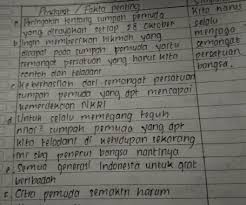 Pendapat / Fakta penting
a. Peringatan tentang sumpah pemuda
yang dirayakan setiap 28 oktober
b. Ingin memberikan hikmah yang
didapat pada sumpah pemuda yaitu
semangat persatuan yang harus kita
contoh dan teladani
c. Keberhasilan dari semangat persatuan
sumpah pemuda yang dpt mencapai
kemerdekaan NKRI
d. Untuk selalu memegang teguh
nilai² sumpah pemuda yang dpt
kita teladani di kehidupan sekarang
penerus bangsa nantinya
e. Semua generasi Indonesia untuk giat
beribadah
f. Citra pemuda semakin harum
kita harus
selalu
menjaga
semangat
persatuan
bangsa.